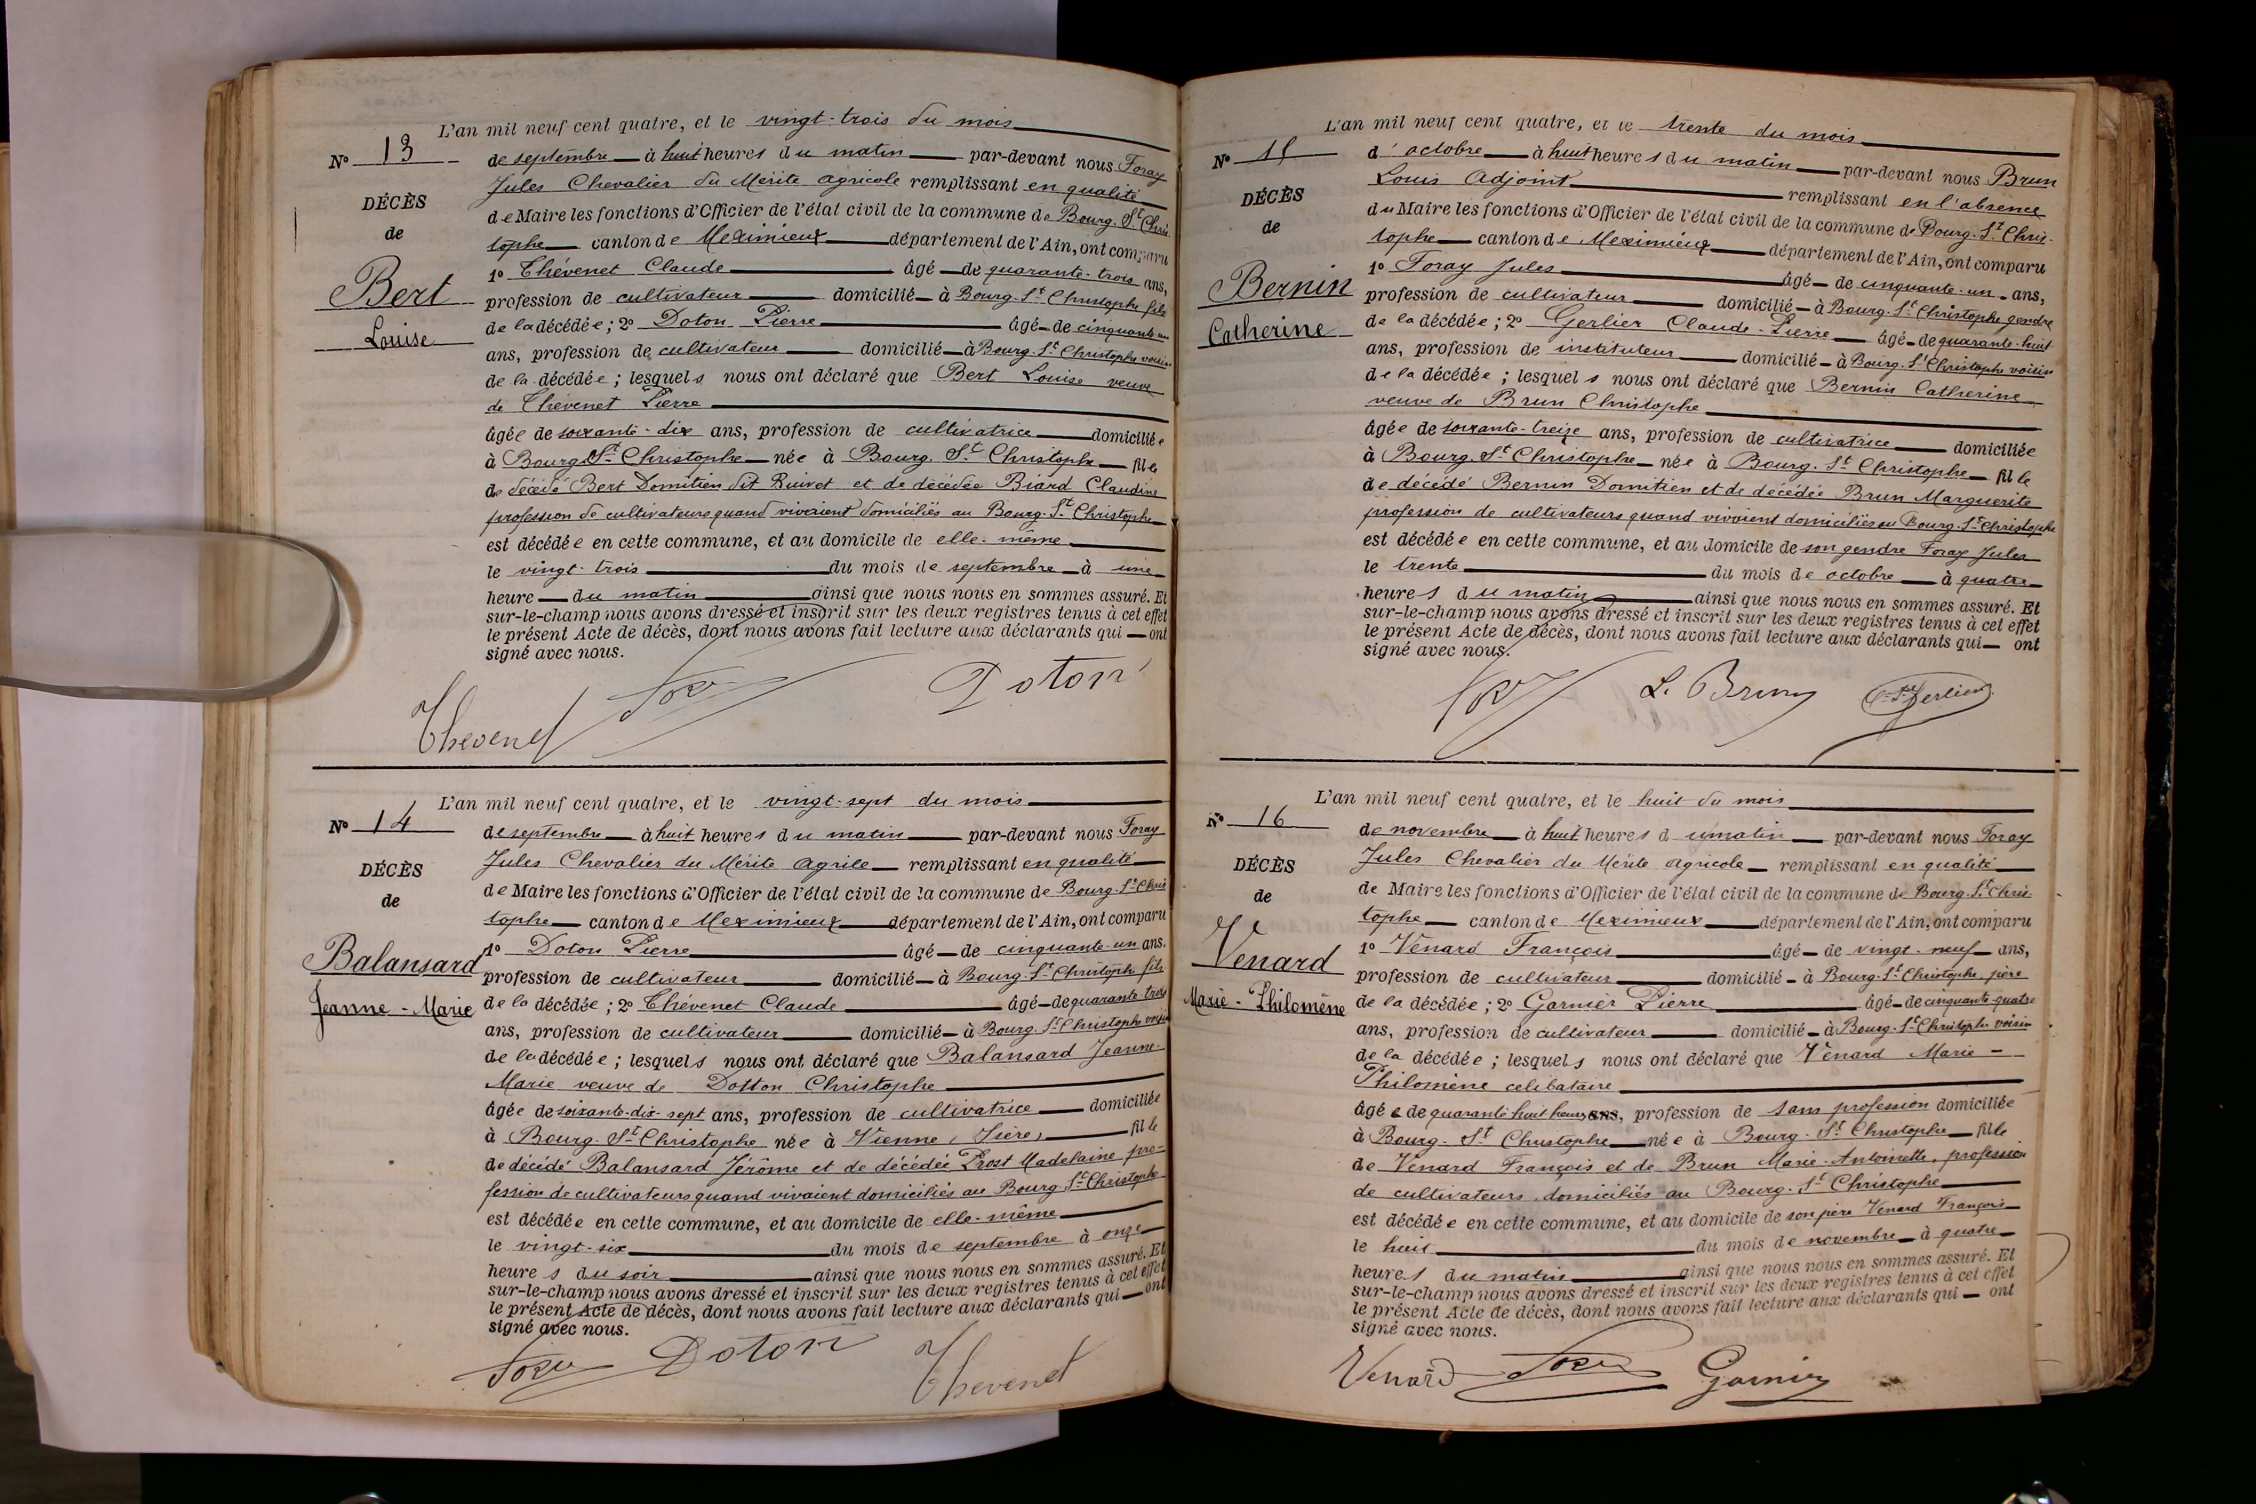 L'an mil neuf cent quatre, et le vingt-trois du mois
No 13
de septembre à huit heures du matin par-devant nous Foray
Jules Chevalier du Mérite agricole remplissant en qualité
DÉCÈS
de Maire les fonctions d'Officier de l'état civil de la commune de Bourg-St Chris-
de
tophe canton de Meximieux département de l'Ain, ont comparu
1o Thévenet Claude âgé de quarante-trois ans,
Bert
profession de cultivateur domicilié à Bourg-St Christophe fils
Louise
de la décédée; 2o Doton Pierre âgé de cinquante-un
ans, profession de cultivateur domicilié à Bourg-St Christophe voisin
de la décédée; lesquels nous ont déclaré que Bert Louise veuve
de Thévenet Pierre
âgée de soixante-dix ans, profession de cultivatrice domiciliée
à Bourg-St Christophe née à Bourg-St Christophe fille
de décédé Bert Domitien dit Buivet et de décédée Biard Claudine
profession de cultivateurs quand vivaient domiciliés au Bourg-St Christophe
est décédée en cette commune, et au domicile de elle-même
le vingt-trois du mois de septembre à une
heure du matin ainsi que nous nous en sommes assuré. Et
sur-le-champ nous avons dressé et inscrit sur les deux registres tenus à cet effet
le présent Acte de décès, dont nous avons fait lecture aux déclarants qui ont
signé avec nous.
Thevenet Foray Doton
L'an mil neuf cent quatre, et le vingt-sept du mois
No 14
de septembre à huit heures du matin par-devant nous Foray
Jules Chevalier du Mérite agrile remplissant en qualité
DÉCÈS
de Maire les fonctions d'Officier de l'état civil de la commune de Bourg-St Chris
de
tophe canton de Meximieux département de l'Ain, ont comparu
1o Doton Pierre âgé de cinquante-un ans.
Balansard
profession de cultivateur domicilié à Bourg-St Christophe fils
Jeanne-Marie
de la décédée; 2o Thévenet Claude âgé de quarante trois
ans, profession de cultivateur domicilié à Bourg-St Christophe voisin
de la décédée; lesquels nous ont déclaré que Balansard Jeanne-
Marie veuve de Dotton Christophe
âgée de soixante-dix-sept ans, profession de cultivatrice domiciliée
à Bourg-St Christophe née à Vienne, Isère, fille
de décédé Balansard Jérôme et de décédée Prost Madelaine pro-
fession de cultivateurs quand vivaient domiciliés au Bourg-St Christophe
est décédée en cette commune, et au domicile de elle-même
le vingt-six du mois de septembre à onze
heures du soir ainsi que nous nous en sommes assuré. Et
sur-le-champ nous avons dressé et inscrit sur les deux registres tenus à cet effet
le présent Acte de décès, dont nous avons fait lecture aux déclarants qui ont
signé avec nous.
Foray Doton Thevenet
L'an mil neuf cent quatre, et le trente du mois
No 15
d'octobre à huit heures du matin par-devant nous Brun
Louis Adjoint remplissant en l'absence
DÉCÈS
du Maire les fonctions d'Officier de l'état civil de la commune de Bourg-St Chris-
de
tophe canton de Meximieux département de l'Ain, ont comparu
1o Foray Jules âgé de cinquante-un ans,
Bernin
profession de cultivateur domicilié à Bourg-St Christophe gendre
Catherine
de la décédée; 2o Gerlier Claude-Pierre âgé de quarante-huit
ans, profession de instituteur domicilié à Bourg-St Christophe voisin
de la décédée; lesquels nous ont déclaré que Bernin Catherine
veuve de Brun Christophe
âgée de soixante-treize ans, profession de cultivatrice domiciliée
à Bourg-St Christophe née à Bourg-St Christophe fille
de décédé Bernin Domitien et de décédée Brun Marguerite
profession de cultivateurs quand vivaient domiciliés au Bourg-St Christophe
est décédée en cette commune, et au domicile de son gendre Foray Jules
le trente du mois de octobre à quatre
heures du matin ainsi que nous nous en sommes assuré. Et
sur-le-champ nous avons dressé et inscrit sur les deux registres tenus à cet effet
le présent Acte de décès, dont nous avons fait lecture aux déclarants qui ont
signé avec nous.
Foray L. Brun C. P. Gerlier
L'an mil neuf cent quatre, et le huit du mois
No 16
de novembre à huit heures du matin par-devant nous Foray
Jules Chevalier du Mérite agricole remplissant en qualité
DÉCÈS
de Maire les fonctions d'Officier de l'état civil de la commune de Bourg-St Chris-
de
tophe canton de Meximieux département de l'Ain, ont comparu
Ve
1o Venard François âgé de vingt-neuf ans,
Venard
profession de cultivateur domicilié à Bourg-St Christophe, père
Marie-Philomène
de la décédée; 2o Garnier Pierre âgé de cinquante-quatre
ans, profession de cultivateur domicilié à Bourg-St Christophe voisin
de la décédée; lesquels nous ont déclaré que Vénard Marie-
Philomène celibataire
âgée de quarante huit heures ans, profession de sans profession domiciliée
à Bourg-St Christophe née à Bourg-St Christophe fille
de Venard François et de Brun Marie-Antoinette, profession
de cultivateurs domiciliés au Bourg-St Christophe
est décédée en cette commune, et au domicile de son père Vénard François
le huit du mois de novembre à quatre
heures du matin ainsi que nous nous en sommes assuré. Et
sur-le-champ nous avons dressé et inscrit sur les deux registres tenus à cet effet
le présent Acte de décès, dont nous avons fait lecture aux déclarants qui ont
signé avec nous.
Venard Foray Garnier